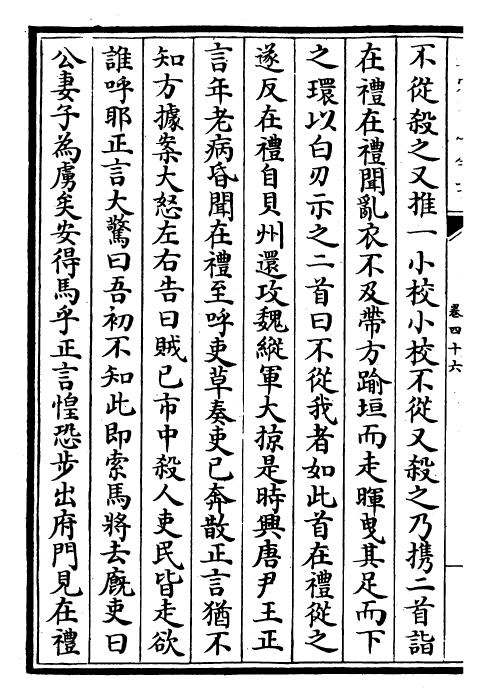 不從殺之又推一小校小校不從又殺之乃携二首詣
在禮在禮聞亂衣不及帶方踰垣而走暉曳其足而下
之環以白刃示之二首曰不從我者如此首在禮從之
遂反在禮自貝州還攻魏縱軍大掠是時興唐尹王正
言年老病昏聞在禮至呼吏草奏吏已奔散正言猶不
知方據案大怒左右告曰賊已市中殺人吏民皆走欲
誰呼耶正言大驚曰吾初不知此即索馬將去廐吏曰
公妻子為虜矣安得馬乎正言惶恐步出府門見在禮
卷四十六